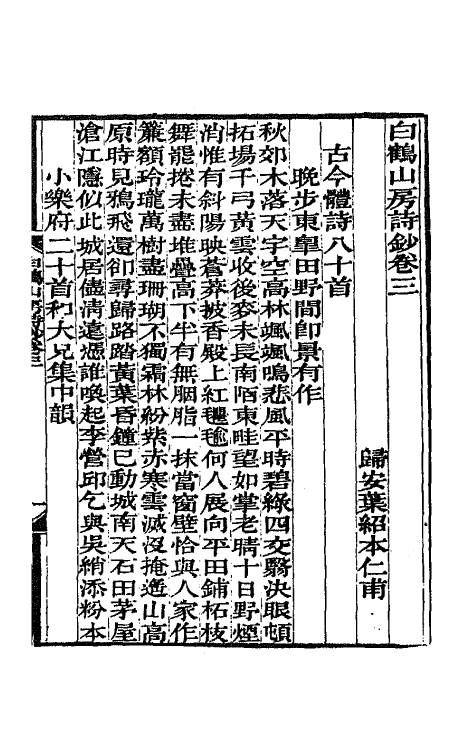 白鶴山房詩鈔卷三
歸安葉紹本仁甫
古今體詩八十首
晚步東臯田野間卽景有作
秋郊木落天宇空高林颯颯鳴悲風平時碧綠四交翳決眼頓
拓場千弓黃雲收後麥未長南陌東畦望如掌老晴十日野煙
消惟有斜陽映蒼莽披香殿上紅氍毹何人展向平田鋪柘枝
舞罷捲未盡堆疊高下半有無胭脂一抹當窗壁恰與人家作
簾額玲瓏萬樹盡珊瑚不獨霜林紛紫赤寒雲滅沒掩遙山高
原時見鴉飛還卻尋歸路踏黃葉昏鐘巳動城南天石田茅屋
滄江隱似此城居儘清遠憑誰喚起李營邱乞與吳綃添粉本
小樂府二十首和大兄集中韻